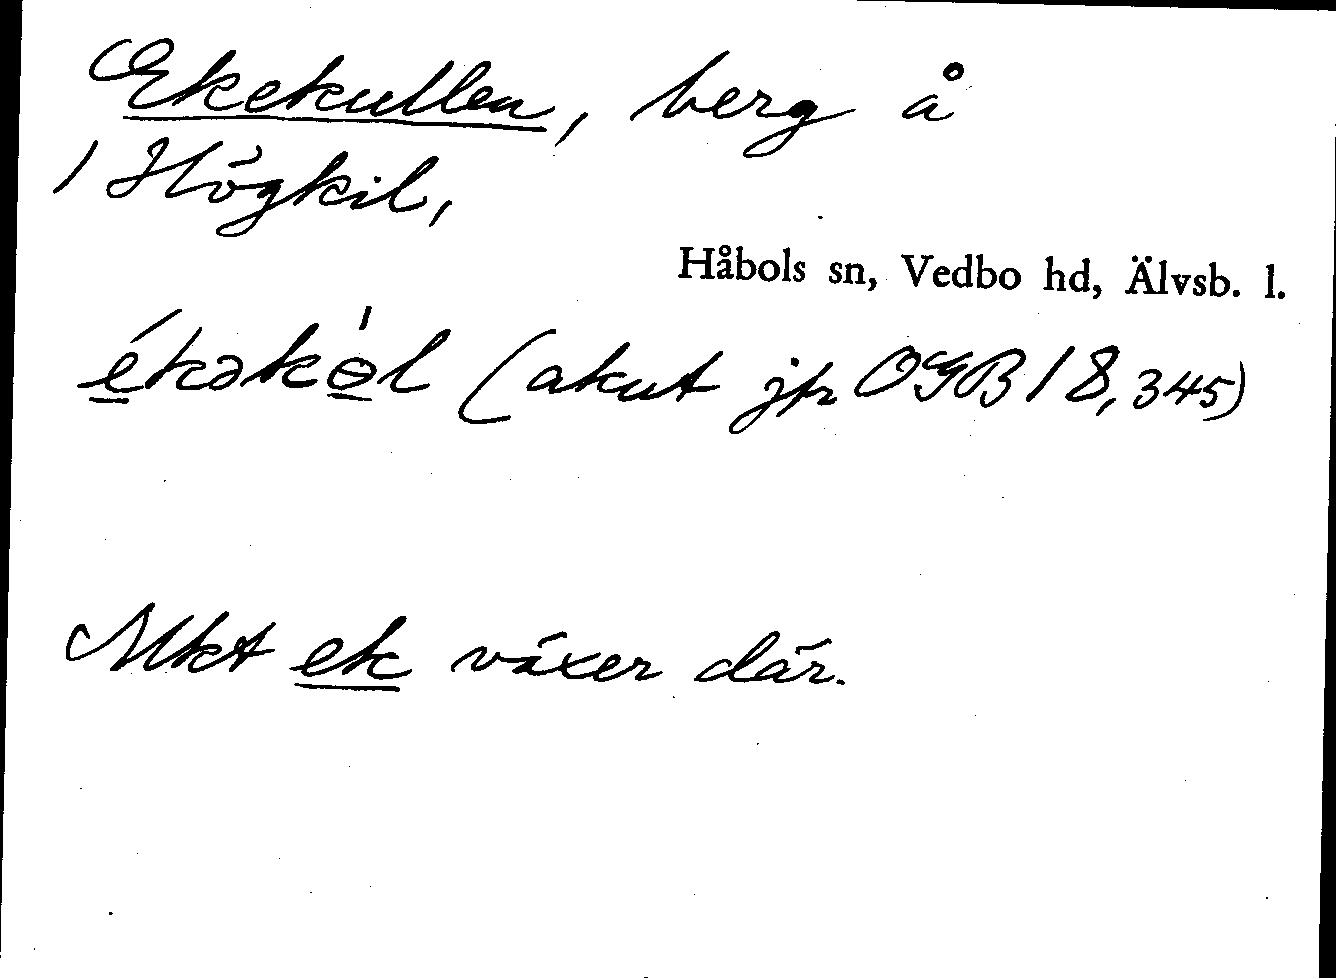 Ekekullen, berg å
1 Högkil,
Håbols sn, Vedbo hd, Älvsb. l.
ékəkɵ́l (akut jfr OGB 18, 345)
Mkt ek växer där.